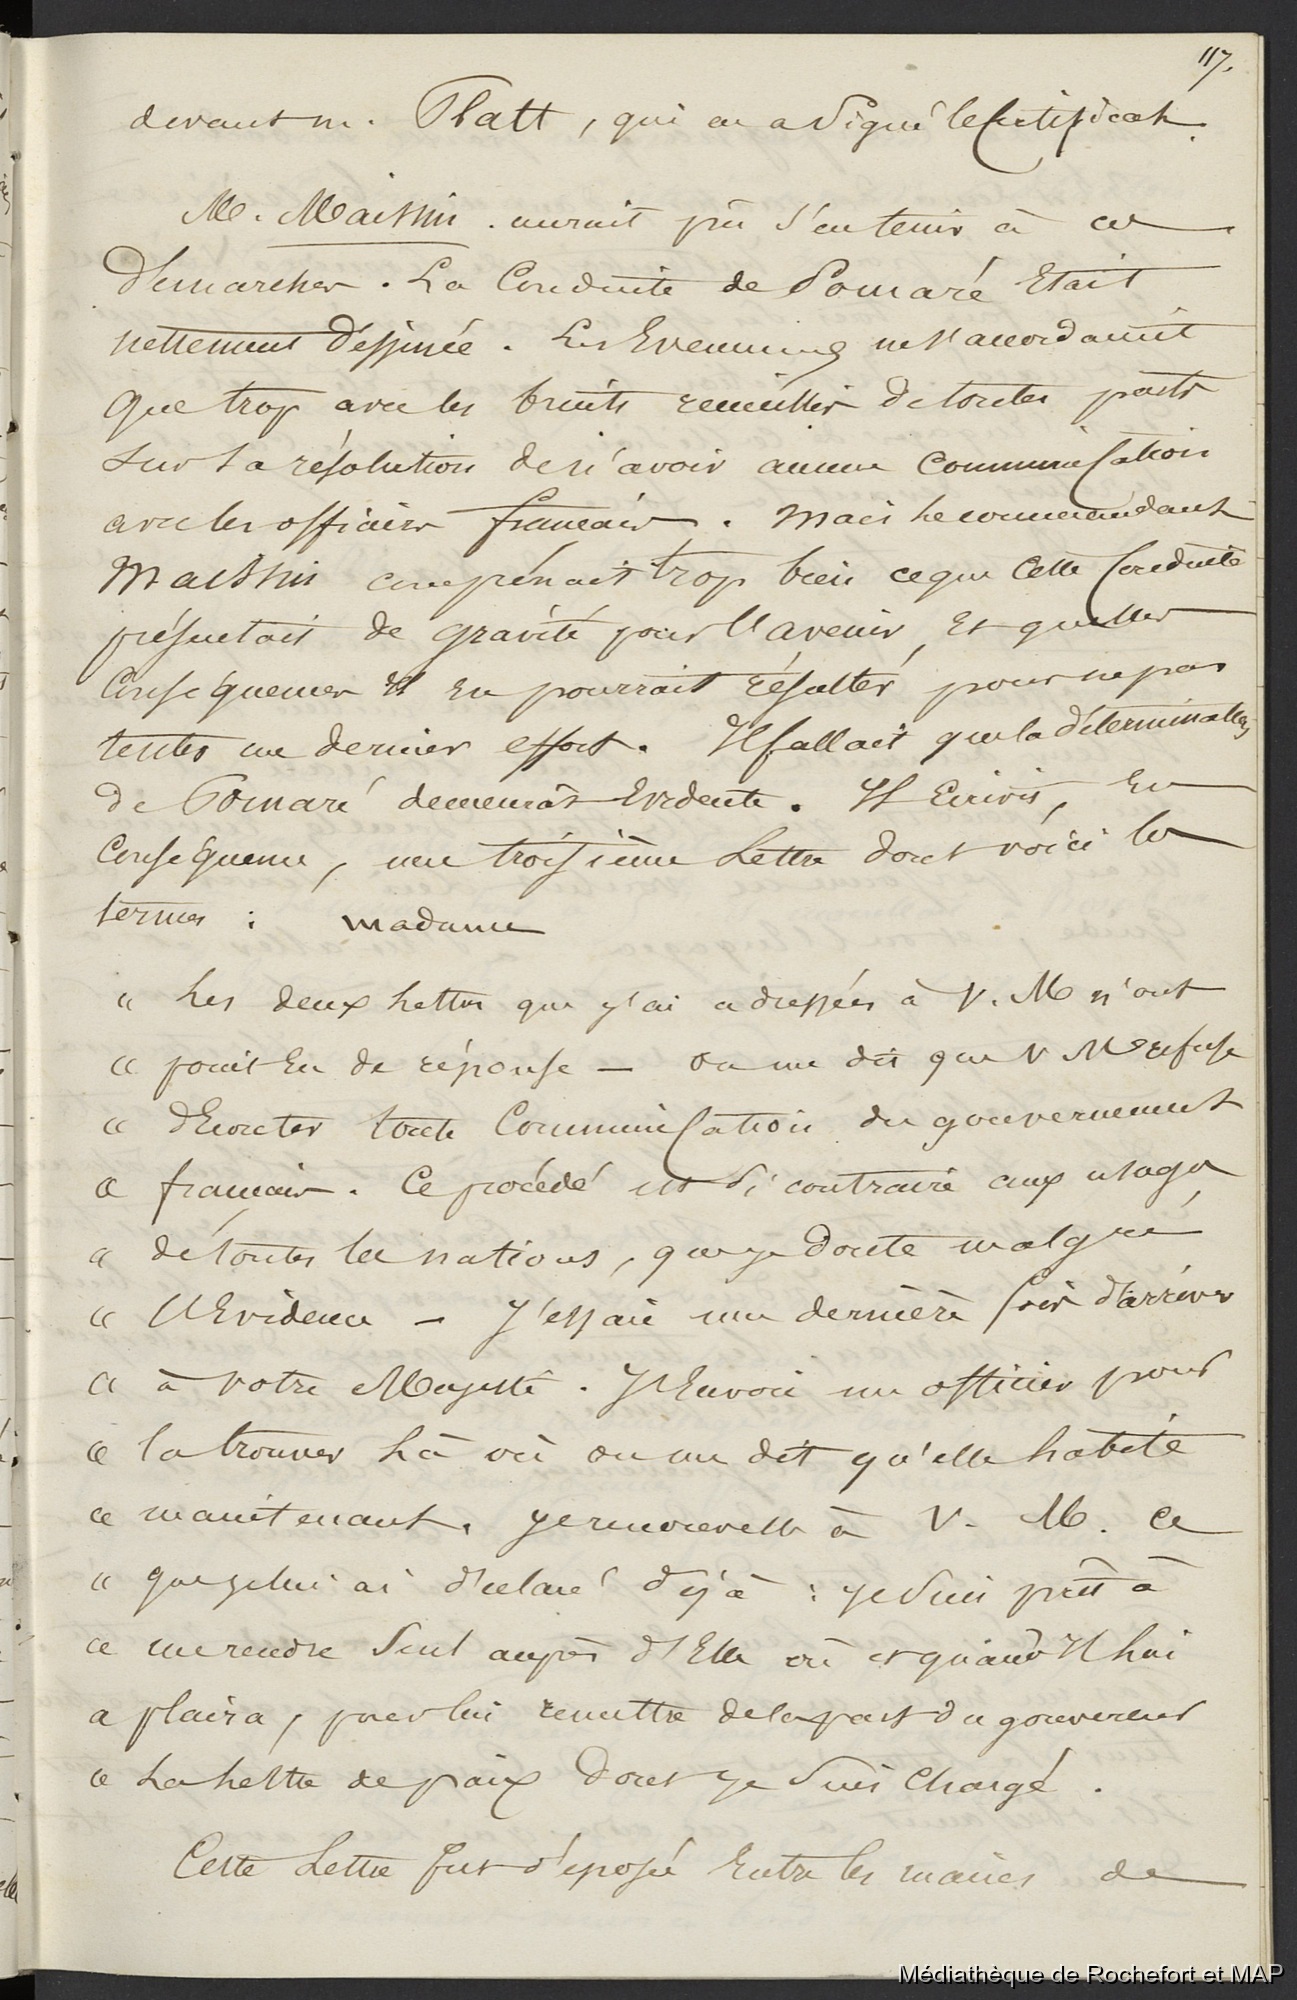 117.
devant m. Platt, qui en a Signé le Certificat.
M. Maissin. aurait pû S'en tenir à ces
Démarches. La Conduite de Pomaré Etait
nettement Dessinée. Les Evenemens ne S'accordaient
que trop avec les bruits recueillis de toutes parts
sur sa résolution de n'avoir aucune Communication
avec les officiers français. Mais le commandant
Maissin comprénait trop bien ce que Cette Conduite
présentait de gravité pour l'avenir, Et quelles
Conséquences il en pourrait résulter pour ne pas
tenter un dernier effort. Il fallait que la détermination
de Pomaré demeurât Evidente. Il Ecrivit, En
Conséquence, une troisième Lettre dont voici les
termes : Madame
" Les deux Lettres que j'ai adressées à V. M n'ont
" point Eu de réponse — on me dit que V Mté refuse
" d'Ecouter toute Communication du gouvernement
" français. Ce procédé est Si contraire aux usages
" de toutes les nations, que je Doute malgré
" l'Evidence — J'essaie une dernière fois d'arriver
" à votre Majesté. J'Envoie un officier pour
" la trouver Là où on me dit qu'elle habite
" maintenant. je renouvelle à V. M. Ce
" que je lui ai déclaré déjà : je Suis prêt à
" me rendre Seul auprès d'Elle où et quand Il lui
" plaira, pour lui remettre de la part du gouverneur
" La Lettre de paix Dont je Suis Chargé.
Cette Lettre fut déposée Entre les mains de
Médiathèque de Rochefort et MAP